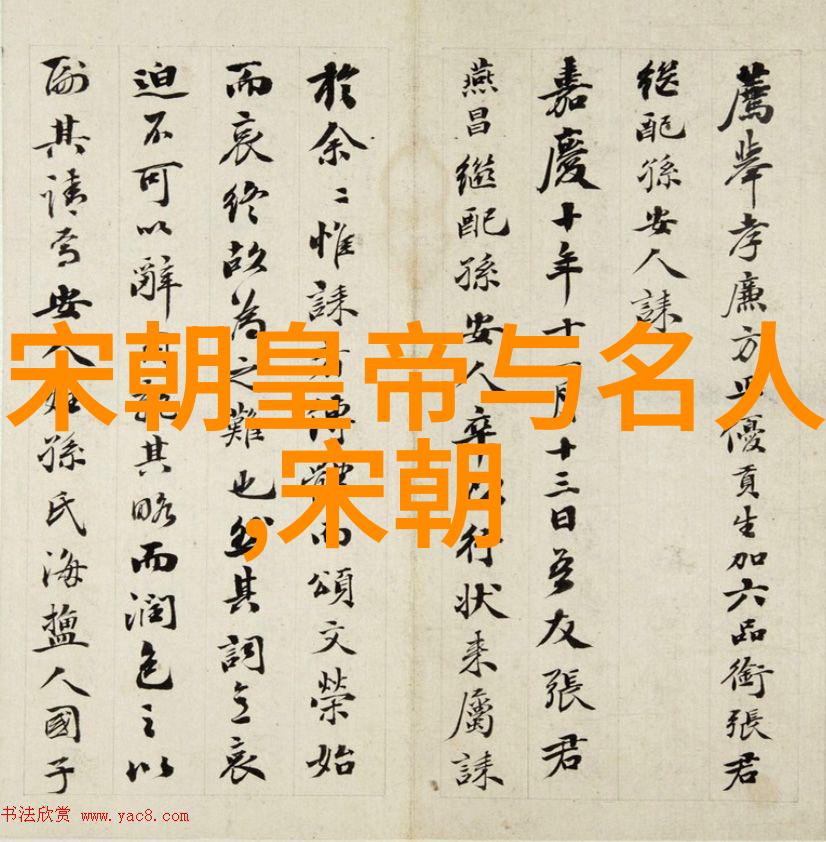 薦舉孝廉方正優貢生加六品銜張君
継配孫安人誄
嘉慶十年十一月十三日吾友張君
燕昌繼配孫安人卒以行状来屬誄
於余〻惟誄傳而頌文榮始
而哀終故為之難也然其詞主哀
迫不可以辭其略而潤色之以
副其請焉安人姓孫氏海鹽人國子
宋朝皇帝与名人
,宋朝
书法欣赏 www.yac8.com